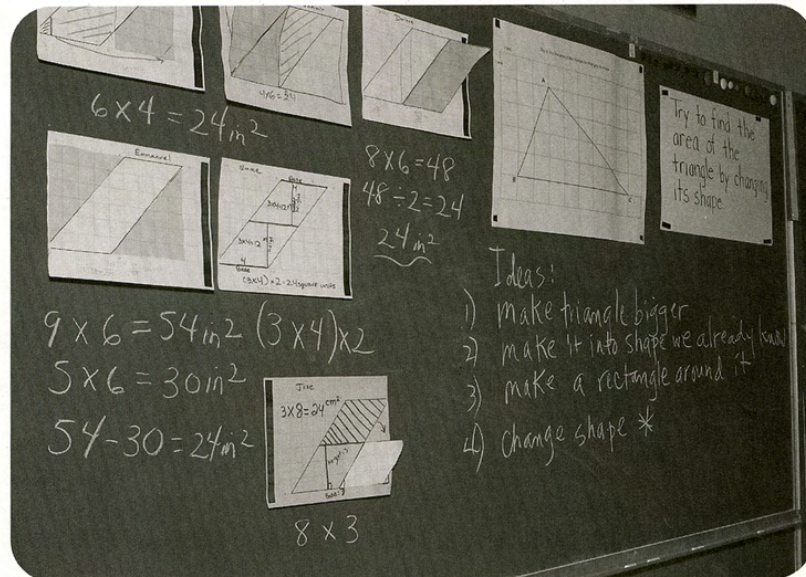 4x6=24
6 x 4 = 24 in²
Emmanuel
8 x 6 = 48
48 ÷ 2 = 24
24 in²
Base
3x4=12
3x4=12
4
Base
(3x4)x2=24 square units
9 x 6 = 54 in² (3 x 4) x 2
5 x 6 = 30 in²
54 - 30 = 24 in²
3x8=24 cm²
8 x 3
A
B
C
Try to find the
area of the
triangle by changing
its shape
Ideas:
1) make triangle bigger
2) make it into shape we already know
3) make a rectangle around it
4) change shape *